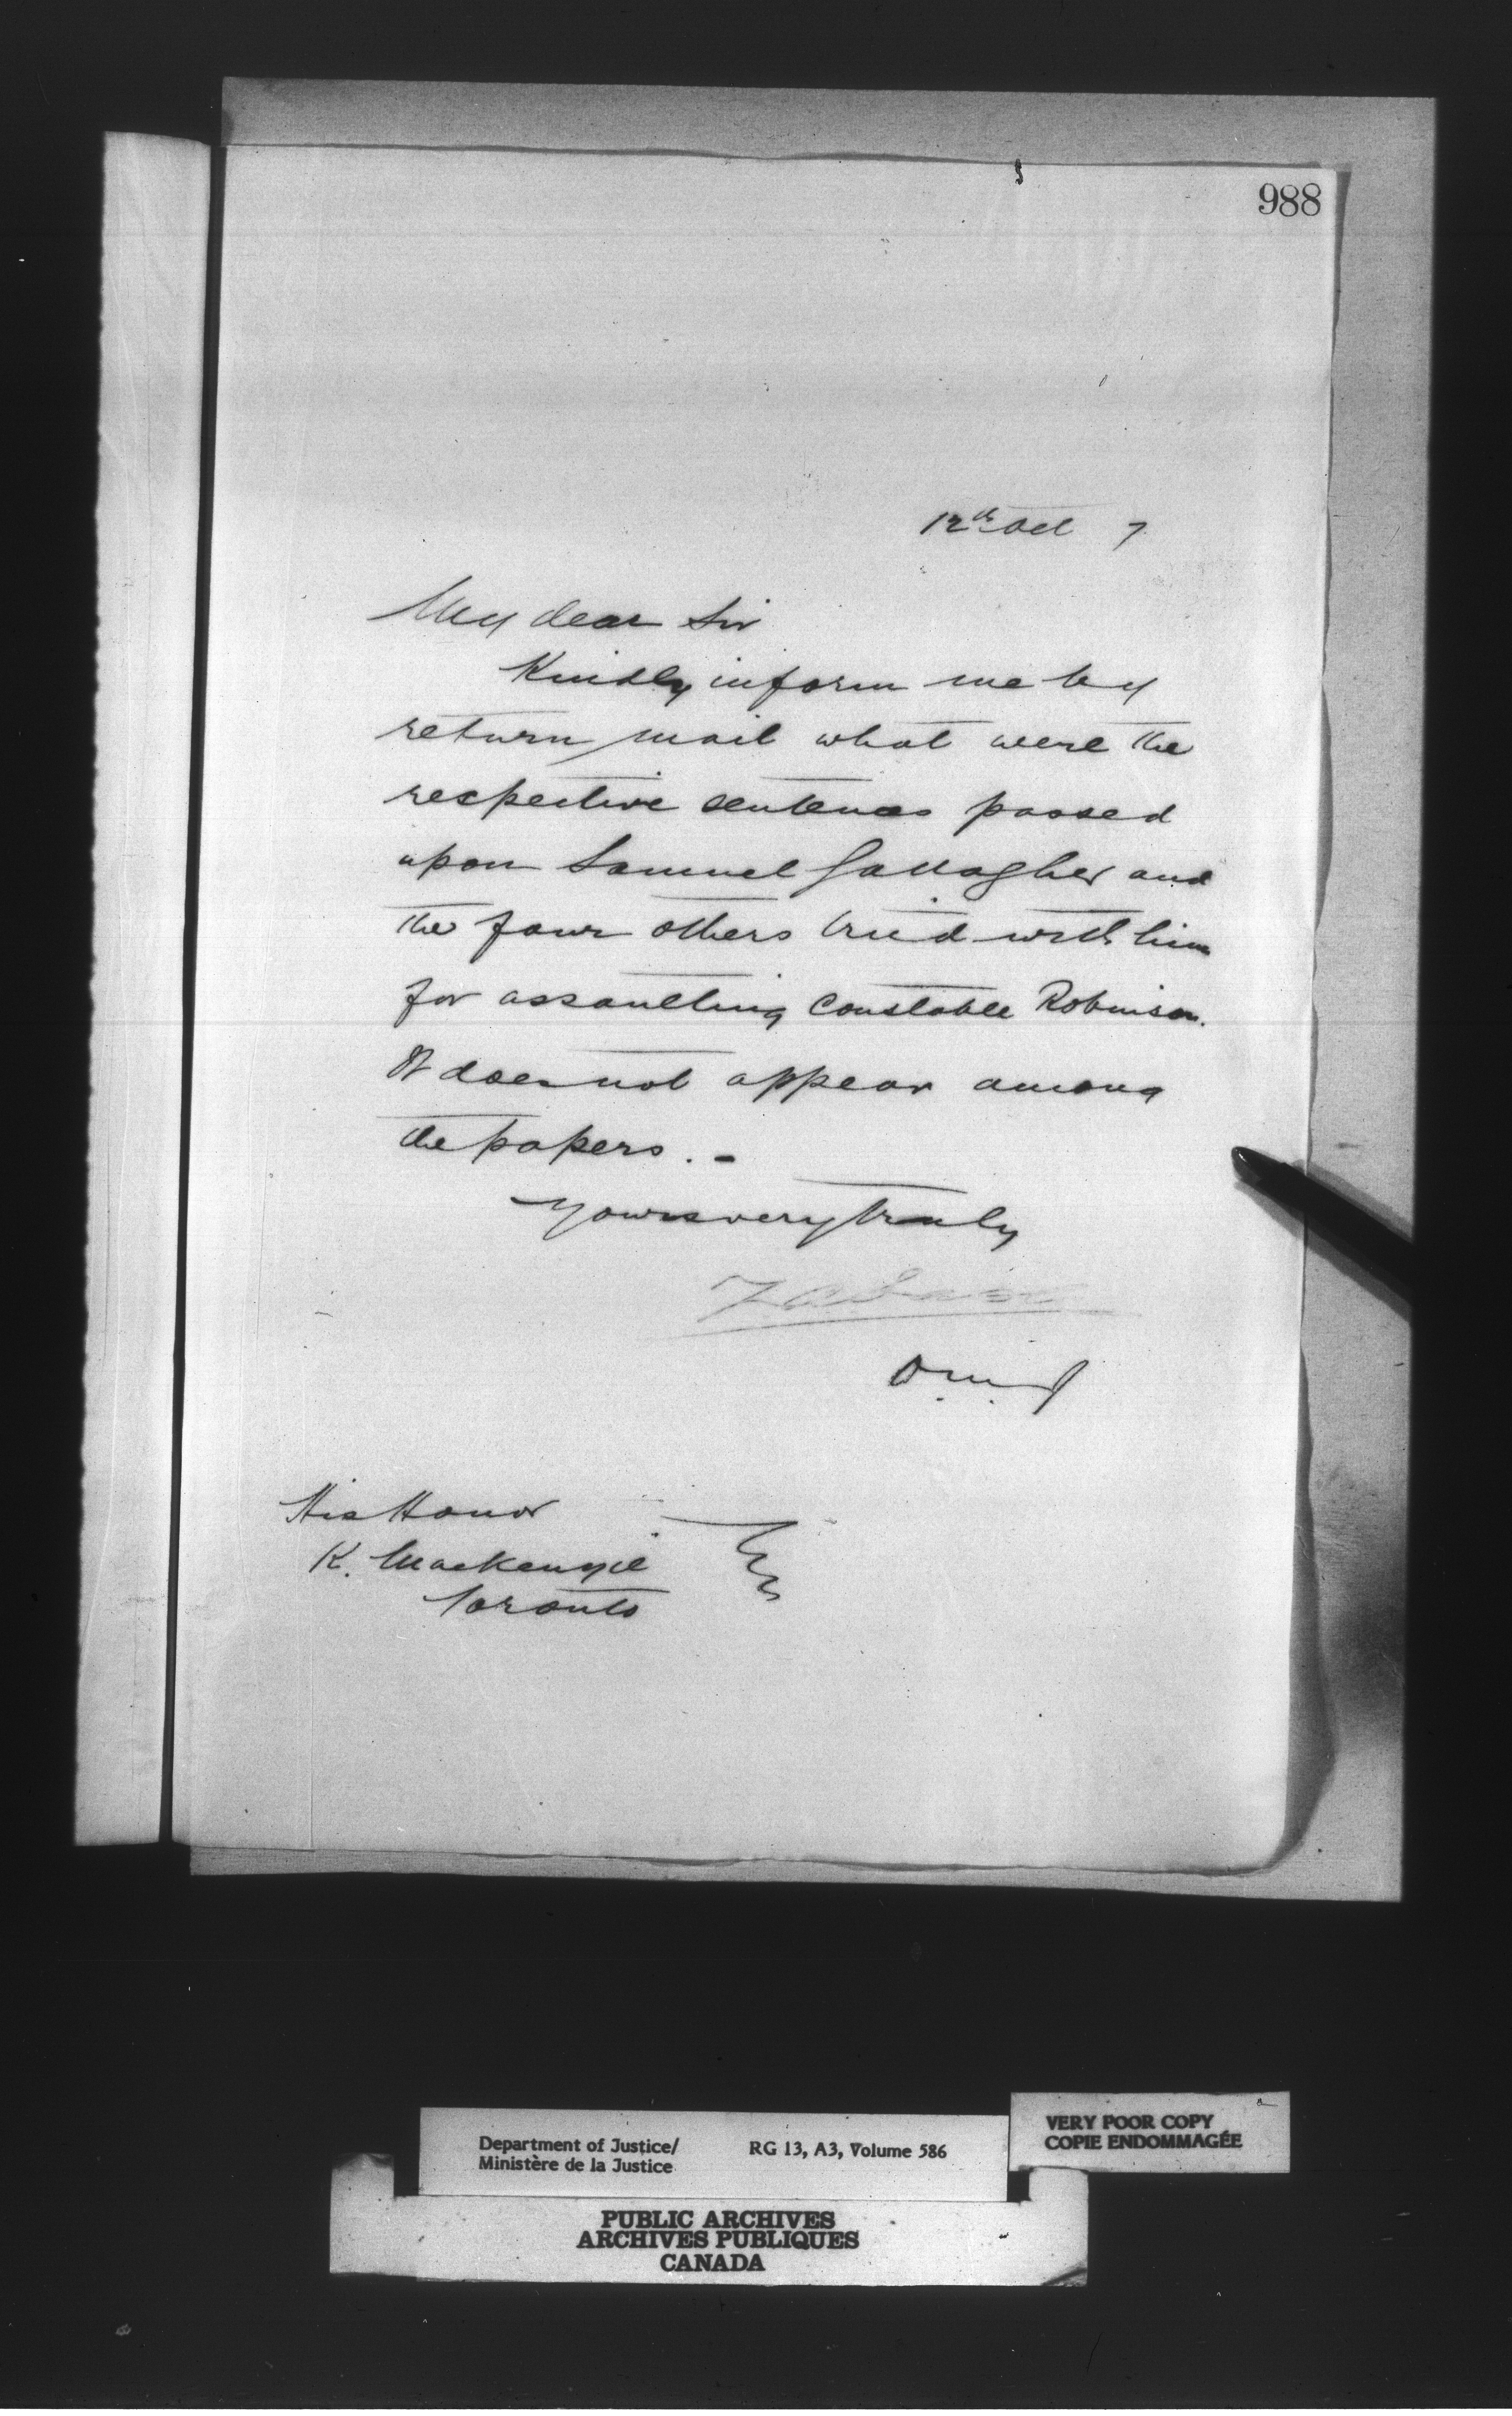 988
12th Oct 7
My dear Sir
Kindly inform me by
return mail what were the
respective sentences passed
upon Samuel Gallagher and
the four others tried with him
for assaulting Constable Robinson.
It does not appear among
the papers. -
Yours very truly
D. M. J
His Honor
K. Mackenzie
Toronto
Department of Justice/
Ministère de la Justice
RG 13, A3, Volume 586
VERY POOR COPY
COPIE ENDOMMAGÉE
PUBLIC ARCHIVES
ARCHIVES PUBLIQUES
CANADA